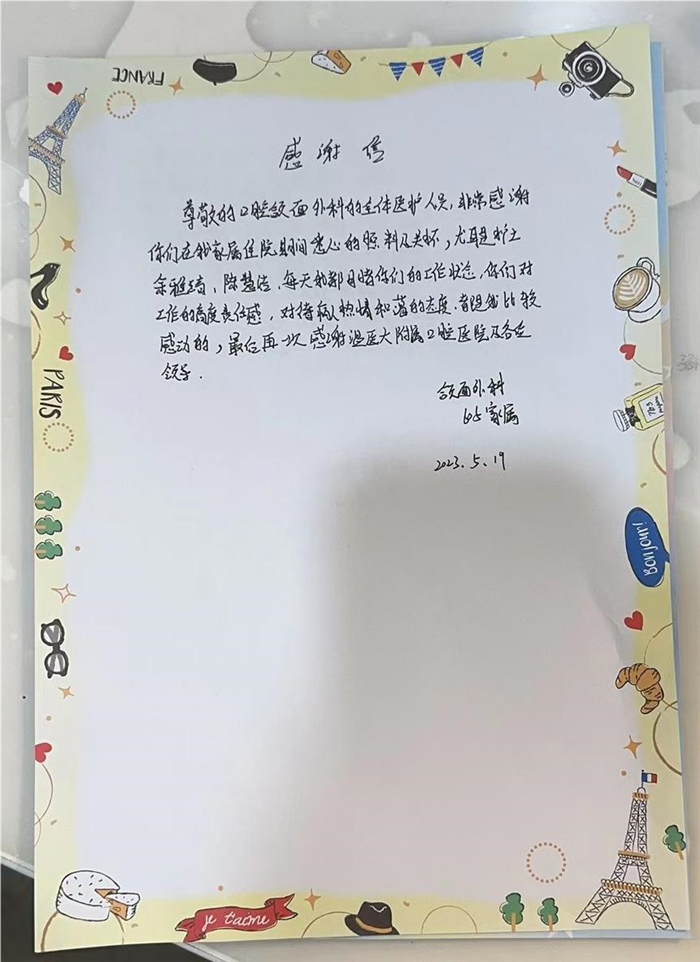 FRANCE
感谢信
尊敬的口腔颌面外科的全体医护人员,非常感谢
你们在我家属住院期间悉心的照料及关怀,尤其是护士
余雅琦、陈慧洁,每天我都目睹你们的工作状态,你们对
工作的高度责任感,对待病人热情和蔼的态度,都是我比较
感动的,最后再一次感谢温医大附属口腔医院及各位
领导.
颌面外科
65家属
2023.5.19
PARIS
Bonjour!
je t'aime